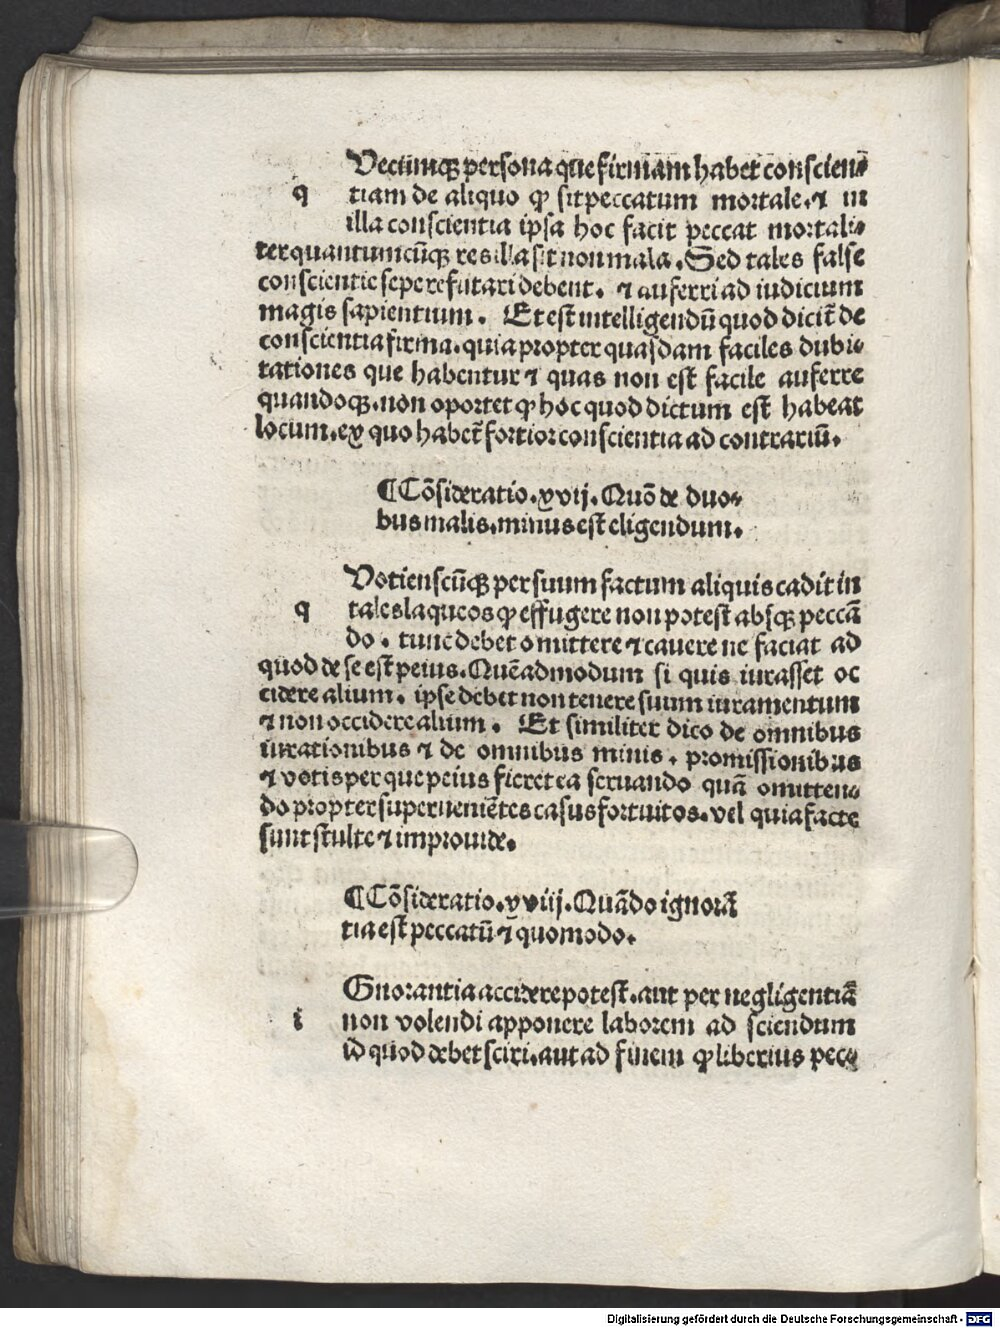 Vecũmqꝫ persona que firmam habet conscien-
q tiam de aliquo ꝙ sit peccatum mortale. ⁊ in
illa conscientia ipsa hoc facit peccat mortali-
ter quantumcũqꝫ res illa sit non mala. Sed tales false
conscientie sepe refutari debent. ⁊ auferri ad iudicium
magis sapientium. Et est intelligendũ quod dicit̃ de
conscientia firma. quia propter quasdam faciles dubi-
tationes que habentur ⁊ quas non est facile auferre
quandoqꝫ. non oportet ꝙ hoc quod dictum est habeat
locum. ex quo habet̃ fortior conscientia ad contrariũ.
¶ Cõsideratio. xvij. Quõ de duo-
bus malis. minus est eligendum.
Votienscũqꝫ per suum factum aliquis cadit in
q tales laqueos ꝙ effugere non potest absqꝫ peccã
do. tunc debet omittere ⁊ cauere ne faciat ad
quod de se est peius. Quẽadmodum si quis iurasset oc
cidere alium. ipse debet non tenere suum iuramentum
⁊ non occidere alium. Et similiter dico de omnibus
iurationibus ⁊ de omnibus minis. promissionibus
⁊ votis per que peius fieret ea seruando quã omitten-
do propter superueniẽtes casus fortuitos. vel quia facte
sunt stulte ⁊ improuide.
¶ Cõsideratio. xviij. Quãdo ignorã
tia est peccatũ ⁊ quomodo.
Gnorantia accidere potest. aut per negligentiã
i non volendi apponere laborem ad sciendum
id quod debet sciri. aut ad finem ꝙ liberius pec-
Digitalisierung gefördert durch die Deutsche Forschungsgemeinschaft - DFG